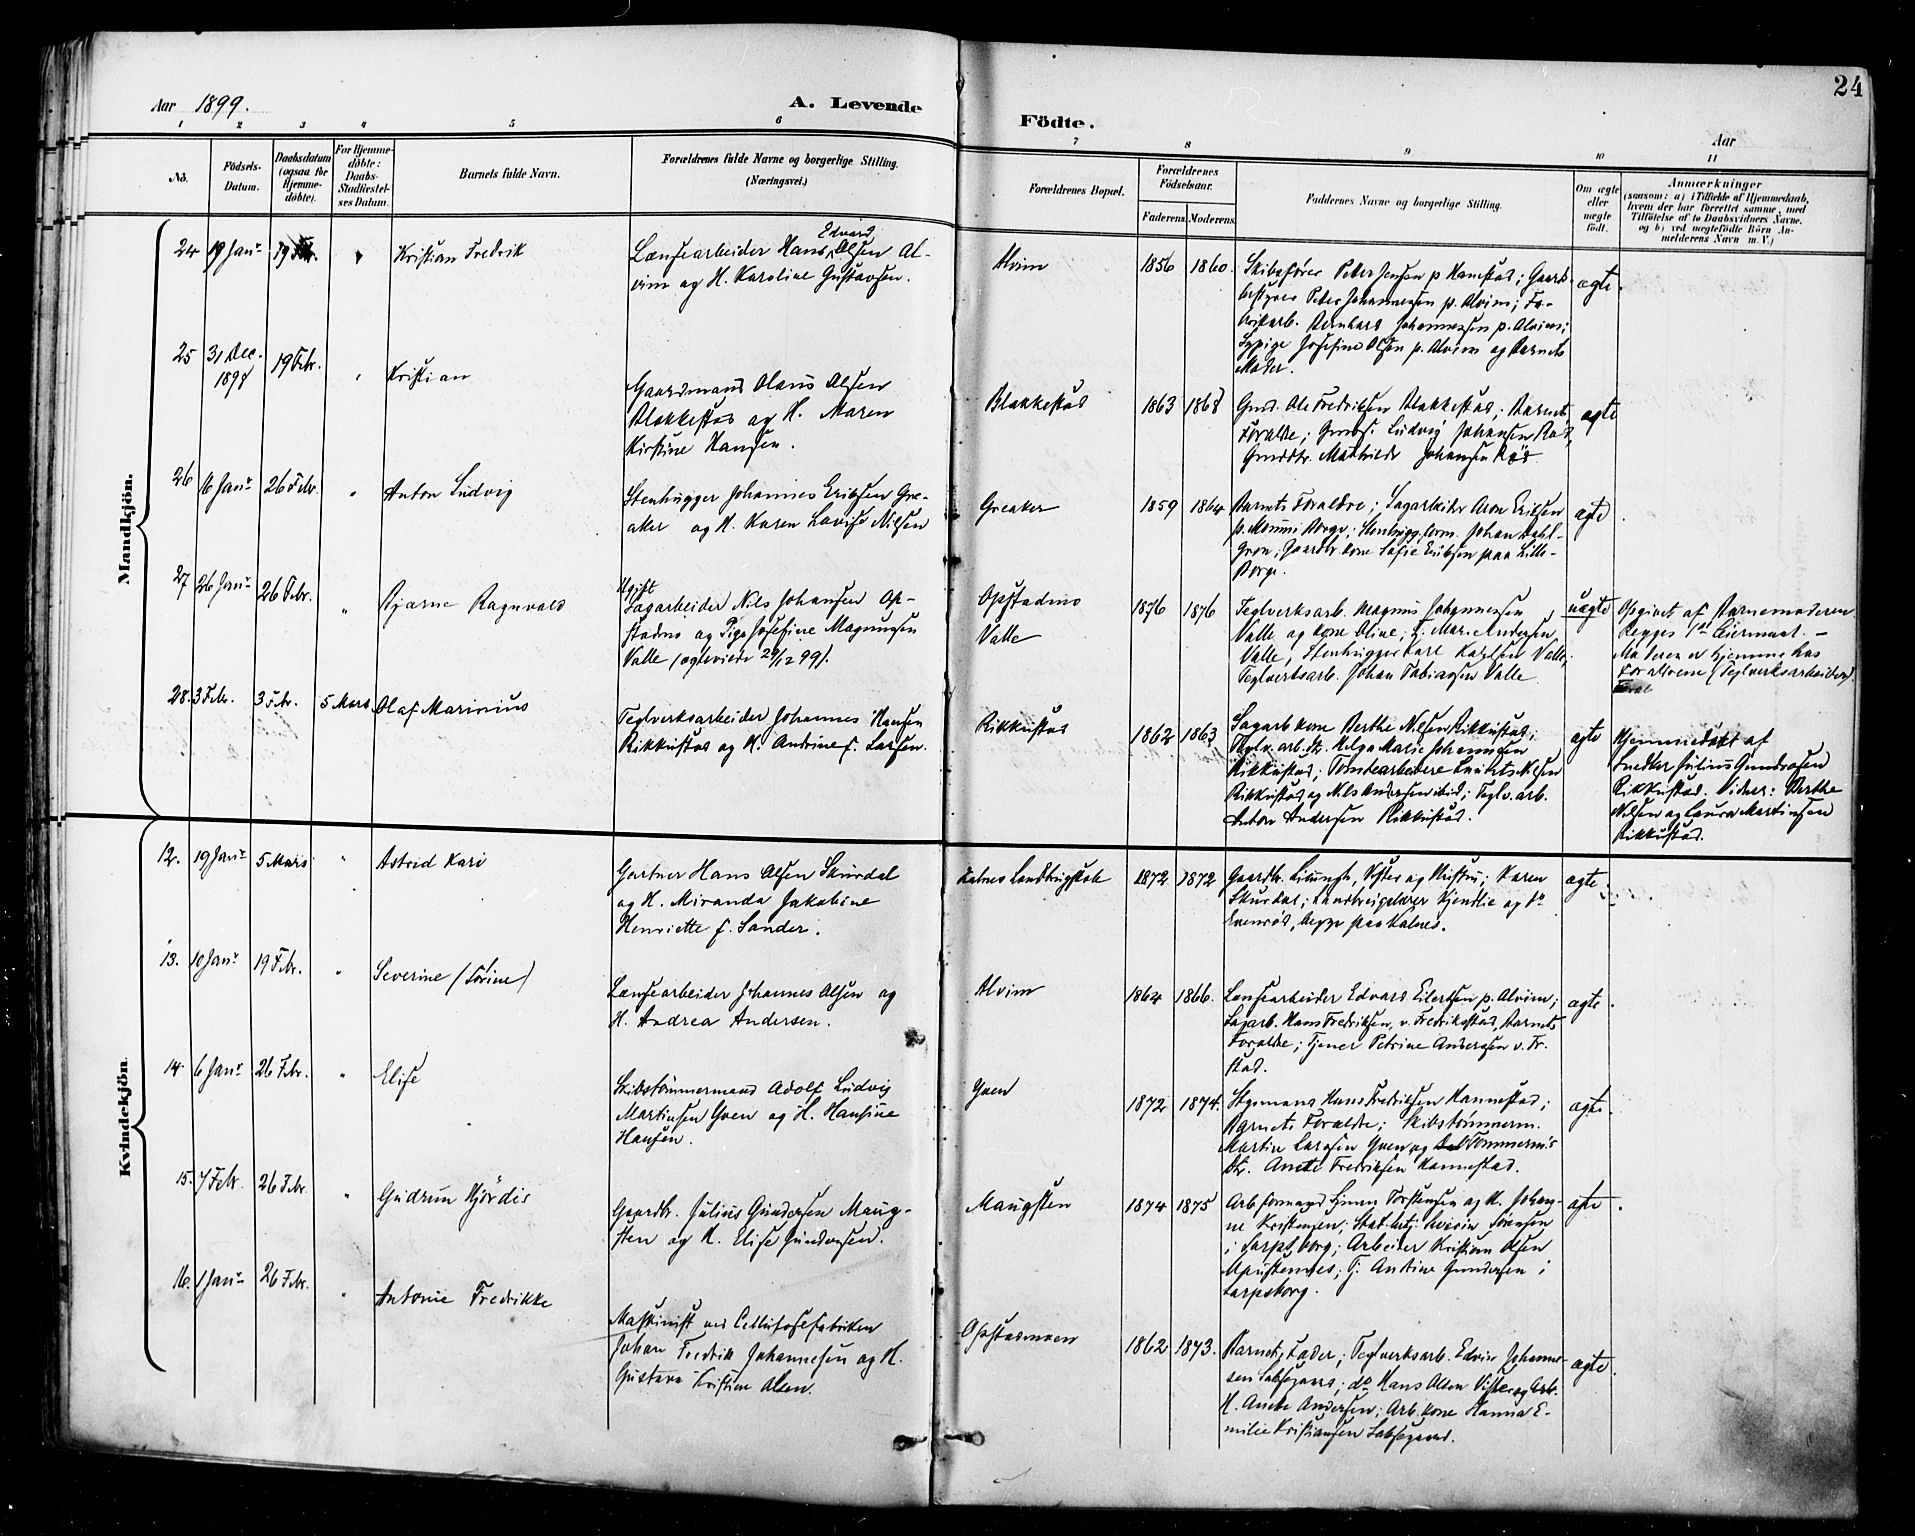 24
Aar 1899.
A. Levende
Födte.
Aar
1
2
3
4
5
6
7
8
9
10
11
No.
Födsels-
Datum.
Daabsdatum
(ogsaa for
Hjemme-
döbte).
For Hjemme-
döbte:
Daabs-
Stadfæstel-
ses Datum.
Barnets fulde Navn.
Forældrenes fulde Navne og borgerlige Stilling.
(Næringsvei.)
Forældrenes Bopæl.
Forældrenes
Födselsaar.
Faderens. Moderens.
Faddernes Navne og borgerlige Stilling.
Om ægte
eller
uægte
født.
Anmærkninger
(saasom: a) i Tilfælde af Hjemmedaab,
hvem der har forrettet samme, med
Tilföielse af to Daabsvidners Navne,
og b) ved uægtefödte Börn An-
melderens Navn m. V.)
Mandkjön.
24 19 Janr 19 Kristian Fredrik
Edvard
Lænsearbeider Hans Olsen Al-
vim og H. Karoline Gustavsen.
Alvim
1856 1860.
Skibsfører Peter Jensen p. Hanestad; Gaards-
bestyrer Peter Johannesen p. Alvim; Fa-
brikarb. Bernhard Johannessen p. Alvim;
Sypige Josefine Olsen p. Alvim og Barnets
Moder.
ægte.
25 31 Dec.
1898
19 Febr. Kristian
Gaardmand Olaus Olsen
Blakkestad og H. Maren
Kirstine Hansen.
Blakkestad
1863 1868
Gmd. Ole Fredriksen Blakkestad; Barnets
Forældre; Gmds. Ludvig Johansen Rød
Gmddtr. Mathilde Johansen Rød
ægte
26 6 Janr 26 Febr. Anton Ludvig
Stenhugger Johannes Eriksen Gre-
aker og H. Karen Lovise Nilsen
Greaker
1859 1864
Barnets Forældre; Sagarbeider Aron Eriksen
p. Borge; Stenhugg.form. Johan Dahl-
Gren; Gaardbr. kone Sofie Eriksen paa Lille-
Borge.
ægte.
27 26 Janr 26 Febr. Bjarne Ragnvald
Ugift
Sagarbeider Nils Johansen Op-
stadmo og Pige Josefine Magnussen
Valle (ægteviede 29/12 99).
Opstadmo
Valle
1876 1876
Teglverksarb. Magnus Johannessen
Valle og kone Oline; Andersen
Valle, Stenhugger Karl Karlsen Valle;
Teglverksarb. Johan Tobiassen Valle
uægte
Opgivet af Barnemoderen
Begges 1ste Leiermaal. –
Moderen er hjemme hos
Forældrene (Teglverksarbeider).
28. 3 Febr. 3 Febr. 5 Mars Olaf Marinius
Teglverksarbeider Johannes Hansen
Rikkustad og H. Andrine f. Larsen.
Rikkustad
1862 1863
Sagarb. kone Berthe Nilsen Rikkustad;
Teglv.arb. dtr. Helga Marie Johannesen
Rikkustad; Tomtearbeidere Laurits Nilsen
Rikkustad og Nils Andersen ibid; Teglv. arb.
Anton Andersen Rikkustad.
ægte
Hjemmedøbt af
Snedker Julius Gundersen
Rikkustad. Vidner: Berthe
Nilsen og Laura Martinsen
Rikkustad.
Kvindekjön.
12. 19 Janr 5 Mars Astrid Kari
Gartner Hans Olsen Skurdal
og H. Miranda Jakobine
Henriette f. Sander.
Kalnes Landbrugskole
1872 1872
Gaardbr. og Hustru; Karen
Skurdal; Landbrugslærer Kjendlie og Do
Evenrød, begge paa Kalnes.
ægte.
13. 10 Janr 19 Febr. Severine (Sörine)
Lænsearbeider Johannes Olsen og
H. Andrea Andersen.
Alvim
1864 1866.
Lænsearbeider Edvard Eilertsen p. Alvim;
Sagarb. Hans Fredriksen, v. Fredriksstad, Barnets
Forældre; Tjener Petrine Andersen v. Fr.
stad.
ægte.
14 6 Janr 26 Febr. Elise
Skibstømmermand Adolf Ludvig
Martinsen Yven og H. Hansine
Hansen.
Yven
1872 1874.
Styrmand Hans Fredriksen Hannestad;
Barnets Forældre; Skibstømmerm.
Martin Larssen Yven og Tømmerm's
Dtr. Anette Fredriksen Hannestad.
ægte.
15. 7 Febr. 26 Febr. Gudrun Hjördis
Gaardbr. Julius Gundersen Maug-
sten og H. Elise Gundersen.
Maugsten
1874 1875
Arb.formand Torstensen og H. Johan-
ne Kristensen; Sørensen
i Sarpsborg; Arbeider Kristian Olsen
Tj. Antine Gundersen i
Sarpsborg.
ægte.
16. 1 Janr 26 Febr. Antonie Fredrikke
Maskinist ved Cellulosefabriken
Johan Fredrik Johannesen og H.
Gustava Kristine Olsen.
Opstadmoen
1862 1873.
Barnets Fader; Teglverksarb. Edvin Johannes-
sen Labsegaard; do Hans Olsen Vister og Arb.
H. Anette Andersen; Arb. kone Hanna E-
milie Kristiansen Labsegaard.
ægte.